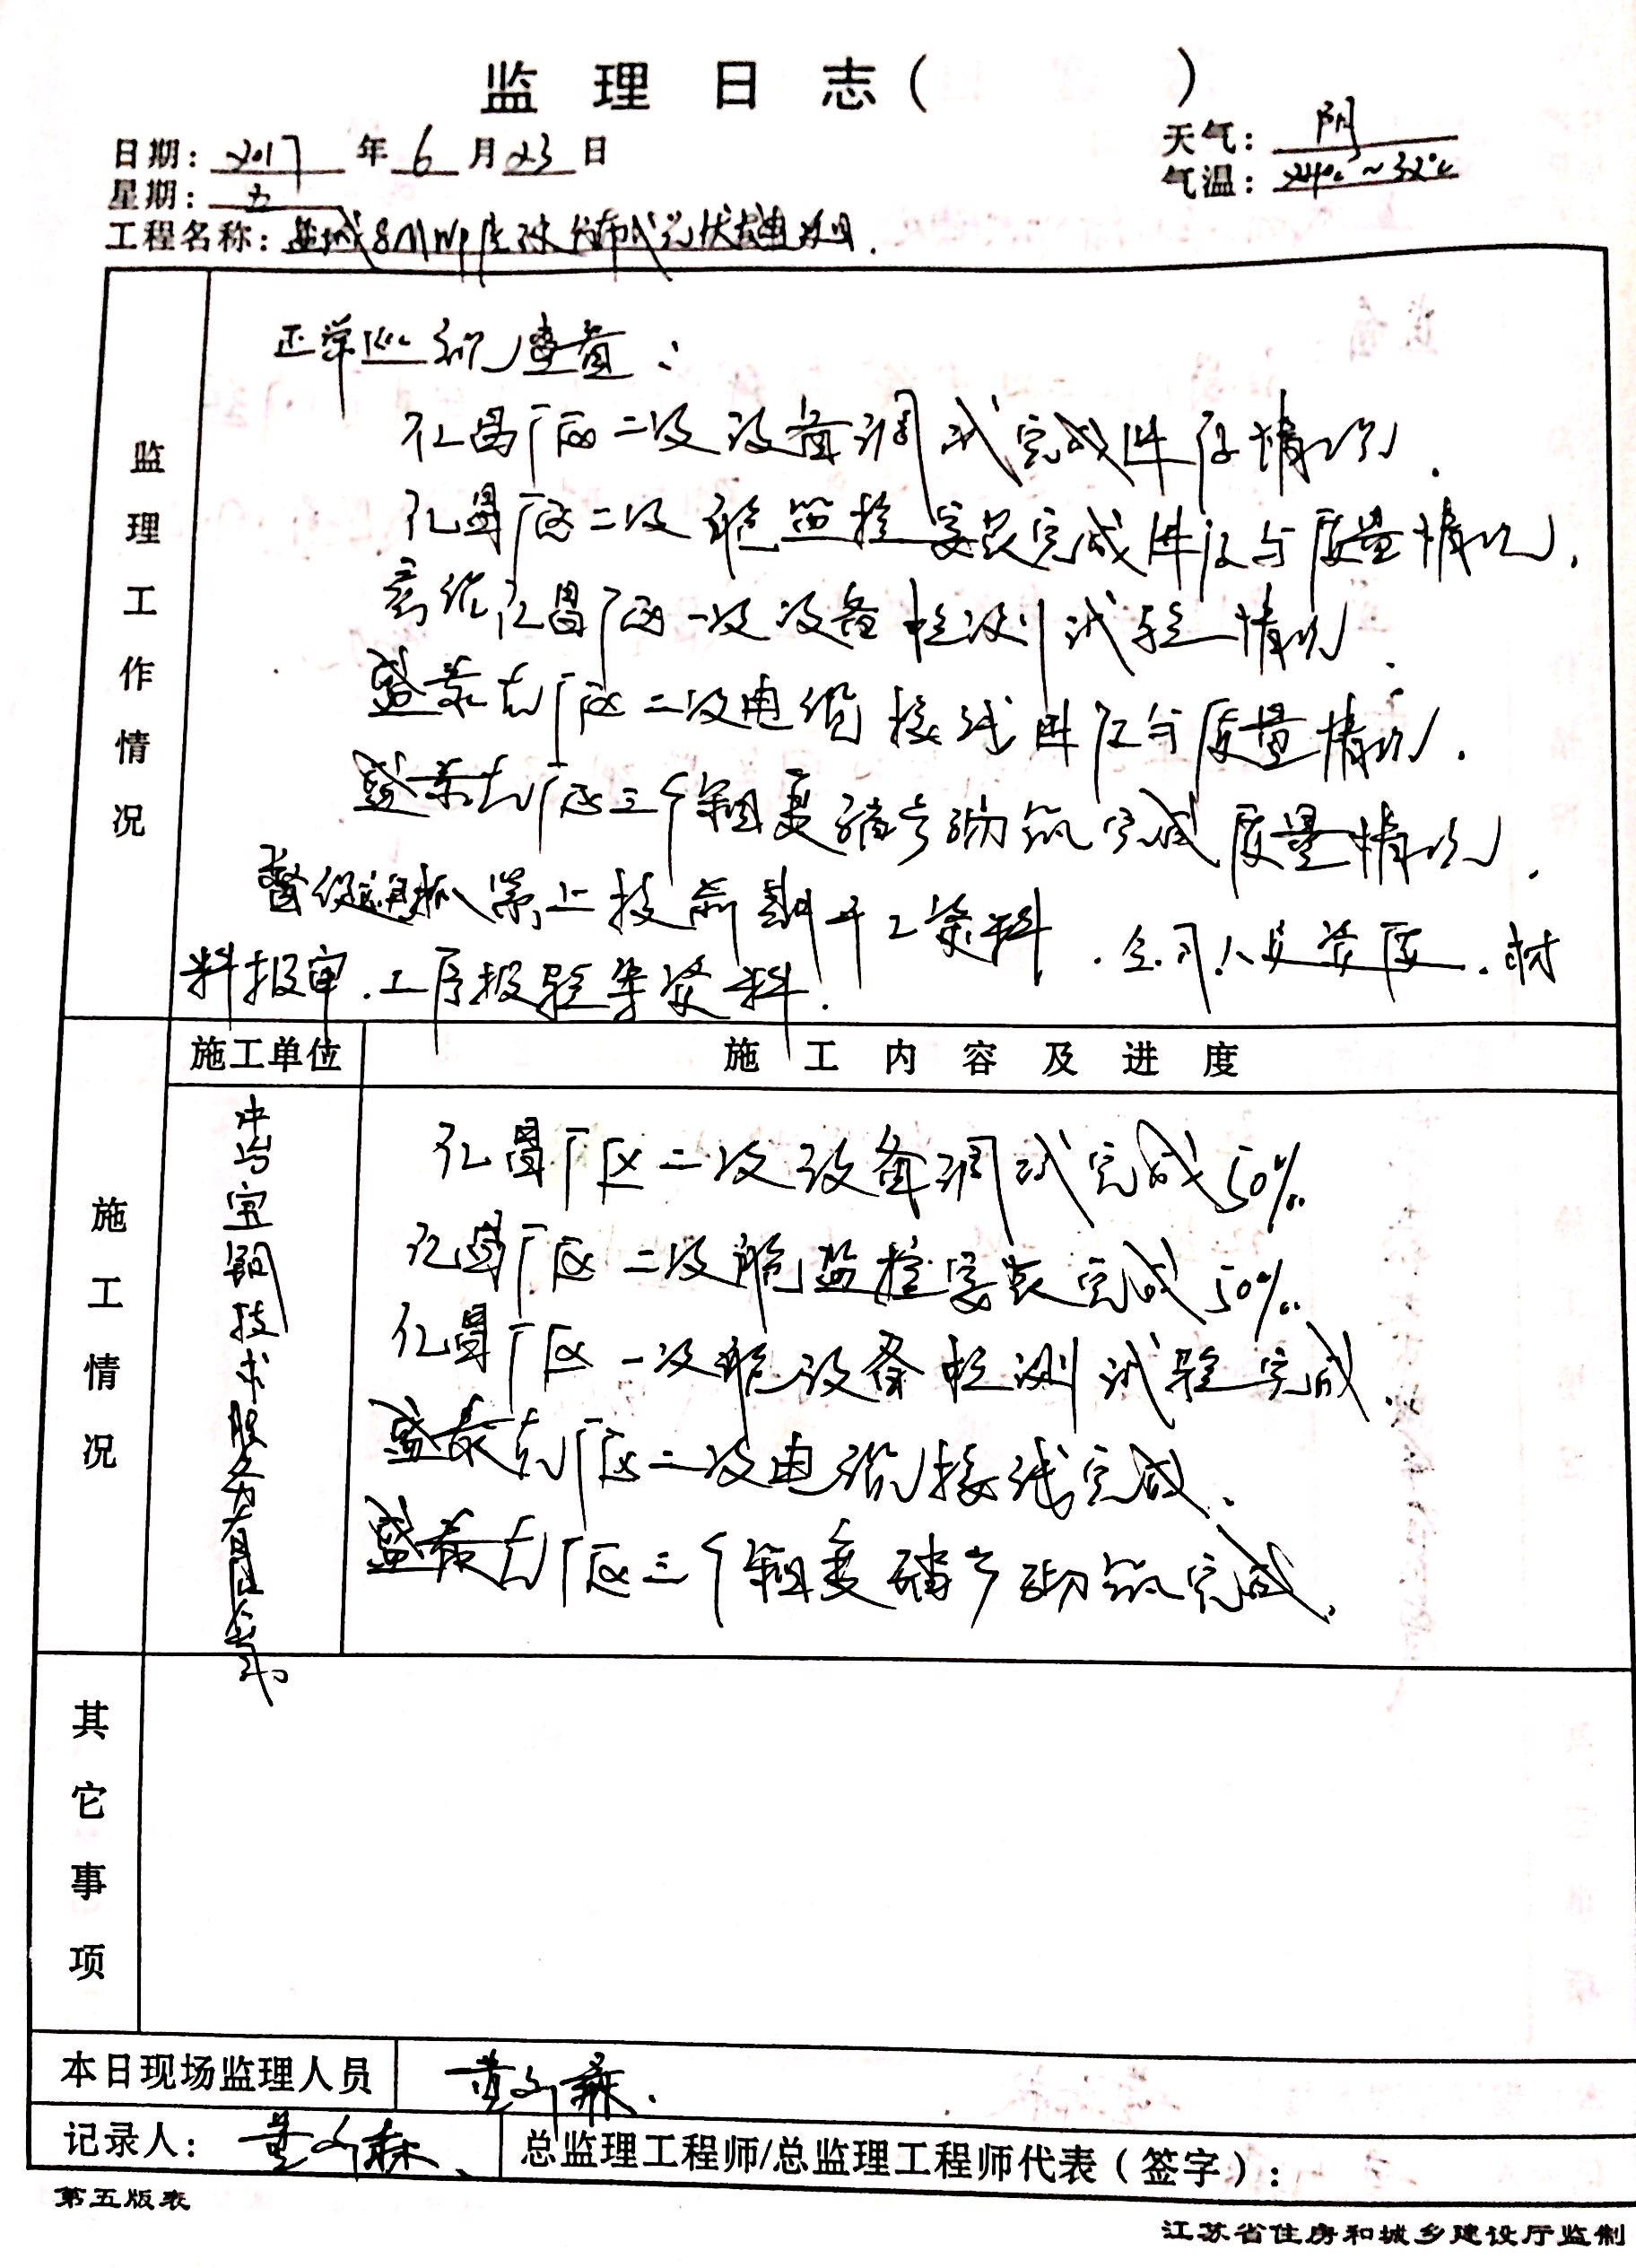 监理日志（ ）
日期：2017年6月23日
天气：阴
星期：五
气温：24℃~32℃
工程名称：盐城8MWP屋顶分布式光伏发电项目.
监理工作情况
正常巡视查看：
亿昌厂区二次设备调试完成进度情况.
亿昌厂区二次 监控安装完成进度与质量情况.
亿昌厂区一次设备检测试验情况.
盛泰克厂区二次电缆接线进度与质量情况.
盛泰克厂区三个箱变 砌筑完成质量情况.
督促 上技前期开工资料.公司人员资质.材
料报审.工序报验等资料.
施工单位
施工内容及进度
施工情况
宝钢技术服务有限公司
亿昌厂区二次设备调试完成50%.
亿昌厂区二次 监控安装完成50%.
亿昌厂区一次 设备检测试验完成.
盛泰克厂区二次电缆接线完成.
盛泰克厂区三个箱变 砌筑完成.
其它事项
本日现场监理人员
黄 森.
记录人：黄 森
总监理工程师/总监理工程师代表（签字）：
第五版表
江苏省住房和城乡建设厅监制